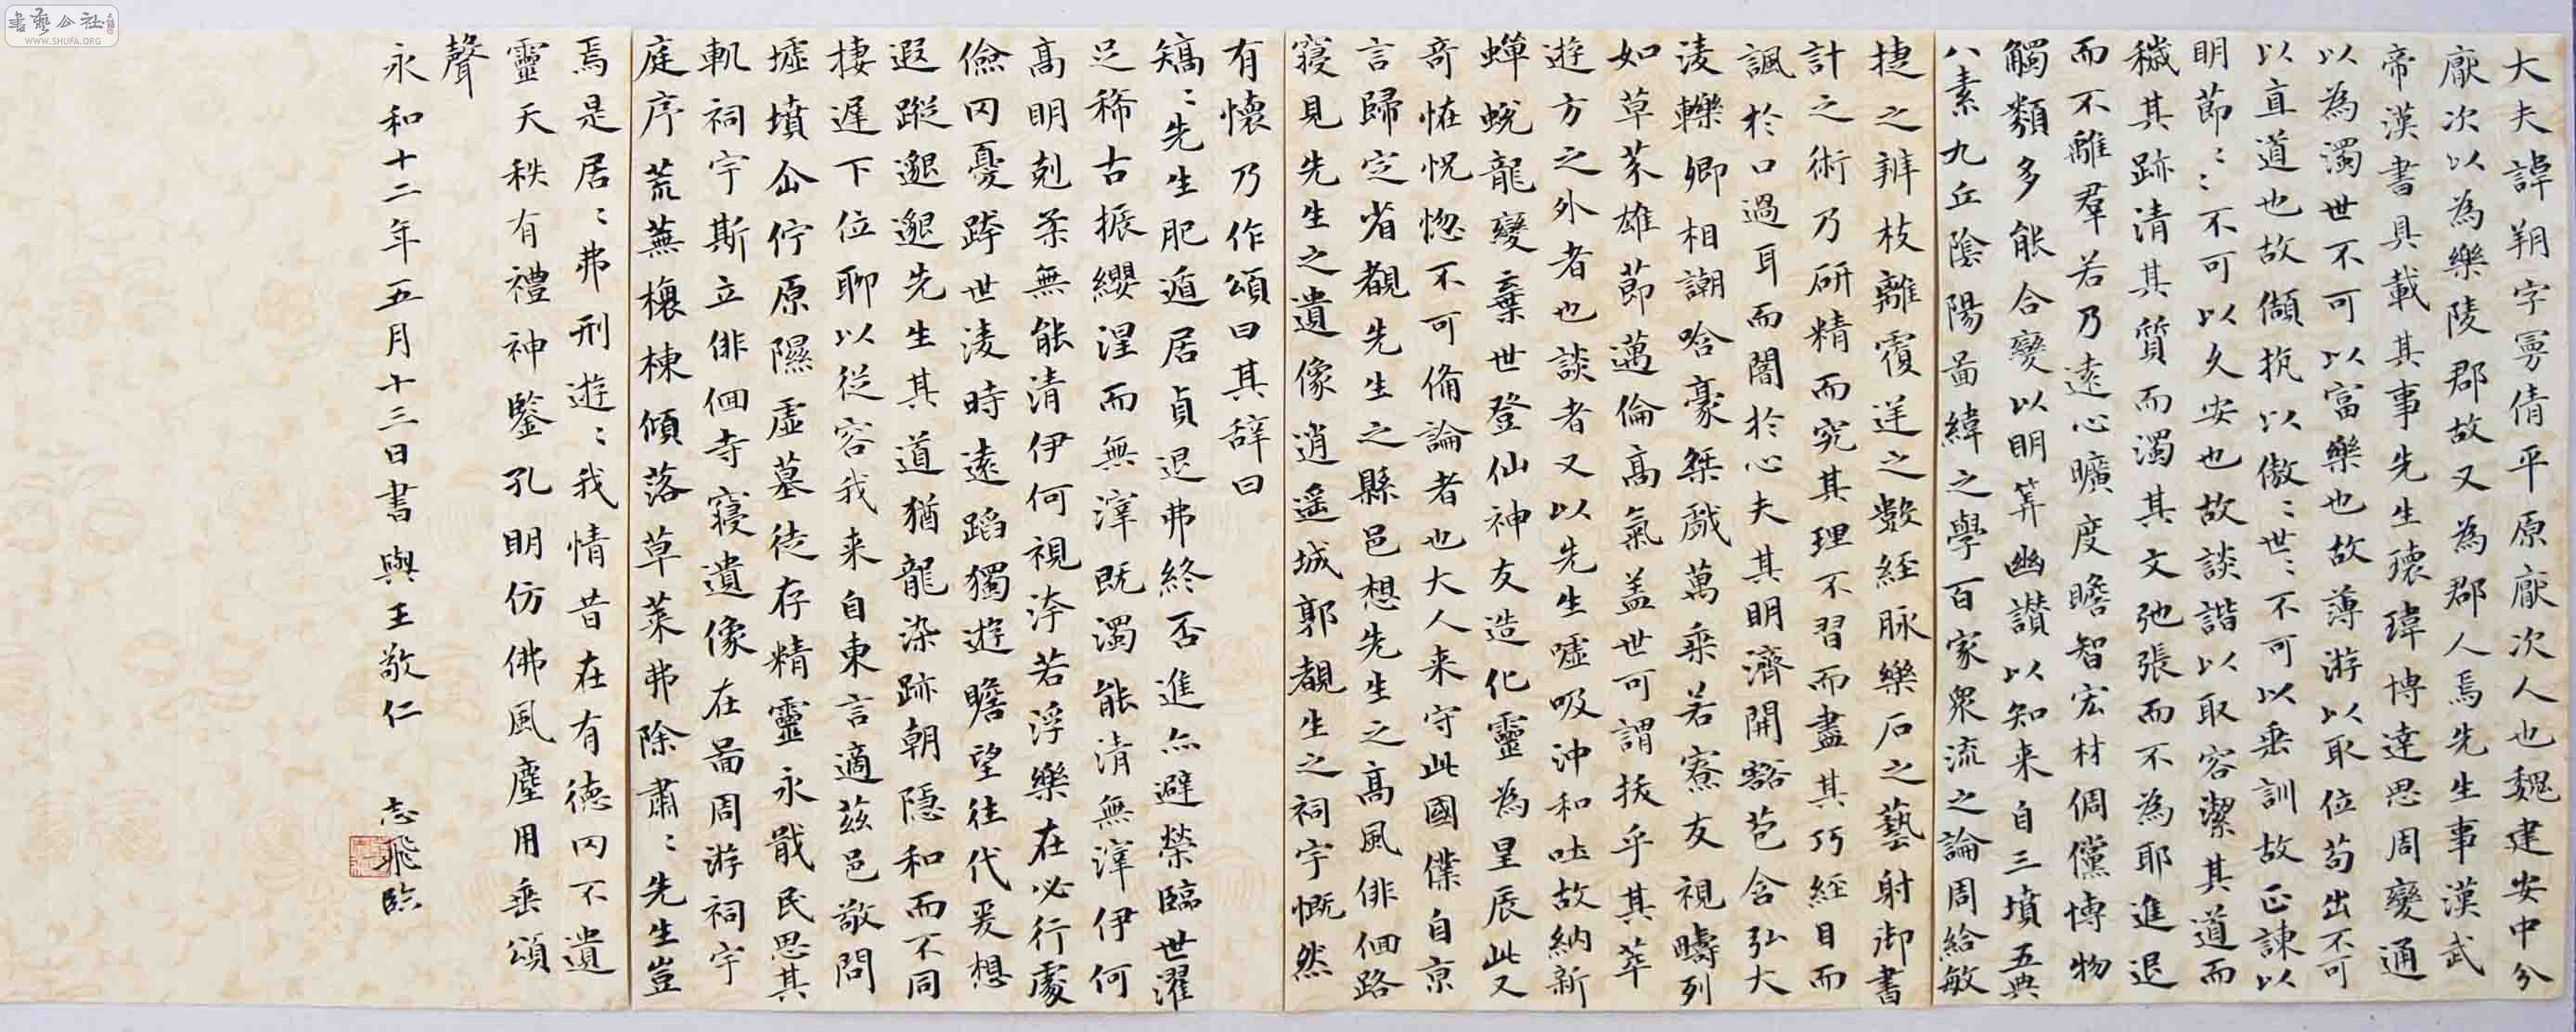 書藝公社
WWW.SHUFA.ORG
大夫諱朔字曼倩平原厭次人也魏建安中分
厭次以為樂陵郡故又為郡人焉先生事漢武
帝漢書具載其事先生瓌瑋博達思周變通
以為濁世不可以富樂也故薄游以取位苟出不可
以直道也故頡抗以傲〻世〻不可以垂訓故正諫以
明節〻不可以久安也故談諧以取容潔其道而
穢其跡清其質而濁其文弛張而不為耶進退
而不離羣若乃遠心曠度贍智宏材倜儻博物
觸類多能合變以明筭幽讚以知来自三墳五典
八素九丘陰陽啚緯之學百家衆流之論周給敏
捷之辨枝離覆逆之數經脉樂石之藝射御書
計之術乃研精而究其理不習而盡其巧經目而
諷於口過耳而闇於心夫其明濟開豁苞含弘大
淩轢卿相謿哈豪桀戲萬乘若寮友視疇列
如草芥雄節邁倫高氣盖世可謂拔乎其萃
遊方之外者也談者又以先生噓吸沖和吐故納新
蟬蛻龍變棄世登仙神友造化靈為星辰此又
奇恠怳惚不可備論者也大人来守此國僕自京
言歸定省覩先生之縣邑想先生之高風徘徊路
寑見先生之遺像逍遥城郭覩生之祠宇慨然
有懷乃作頌曰其辞曰
矯〻先生肥遁居貞退弗終否進亦避榮臨世濯
足稀古振纓涅而無滓既濁能清無滓伊何
高明剋柔無能清伊何視洿若浮樂在必行處
儉罔憂跨世淩時遠蹈獨遊瞻望往代爰想
遐蹤邈邈先生其道猶龍染跡朝隱和而不同
棲遲下位聊以従容我来自東言適茲邑敬問
墟墳企佇原隰虛墓徒存精靈永戢民思其
軌祠宇斯立徘徊寺寑遺像在啚周游祠宇
庭序荒蕪榱棟傾落草莱弗除肅〻先生豈
焉是居〻弗刑遊〻我情昔在有徳罔不遺
靈天秩有禮神鑒孔明仿佛風塵用垂頌
聲
永和十二年五月十三日書與王敬仁 志飛臨